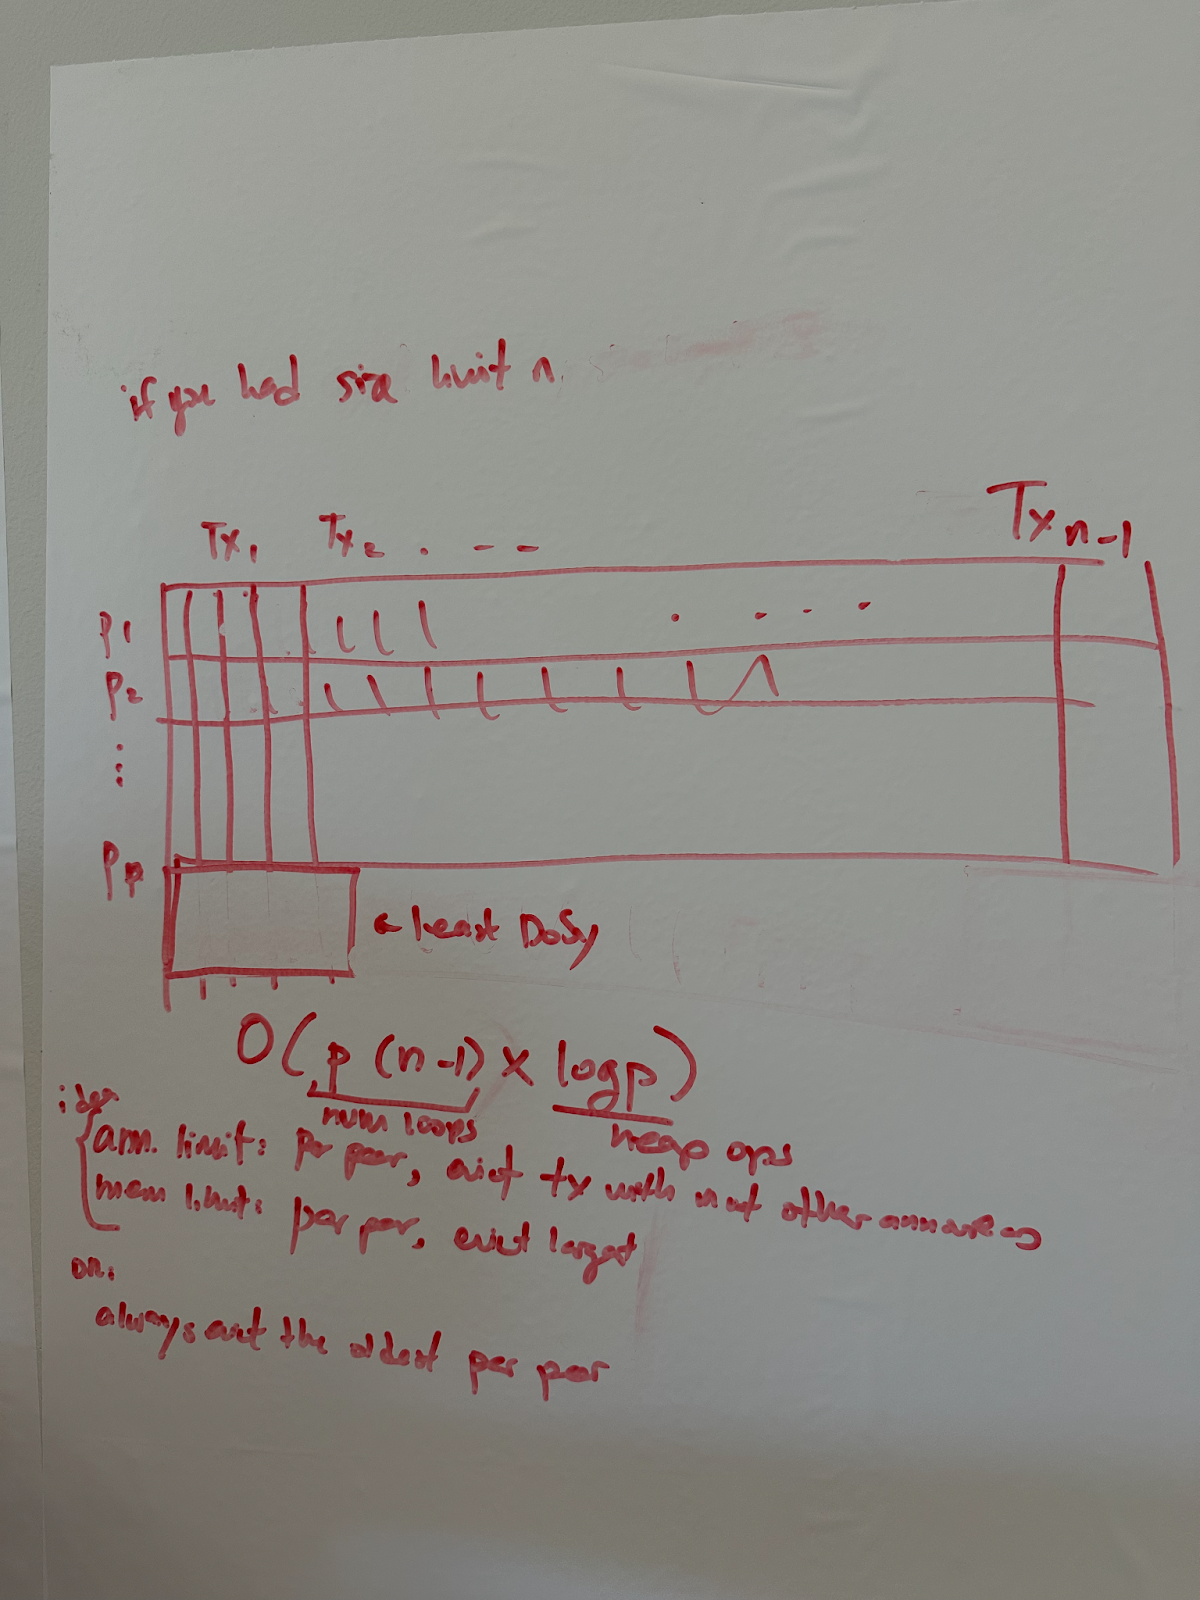 if you had size limit n.
Tx1 Tx2 . - - Txn-1
P1 . . . .
P2
⋮
Pp
← least DoSy
O(p(n-1) x logp)
num loops heap ops
idea
ann. limit: per peer, evict tx with most other announcements
mem limit: per peer, evict largest
or:
always evict the oldest per peer